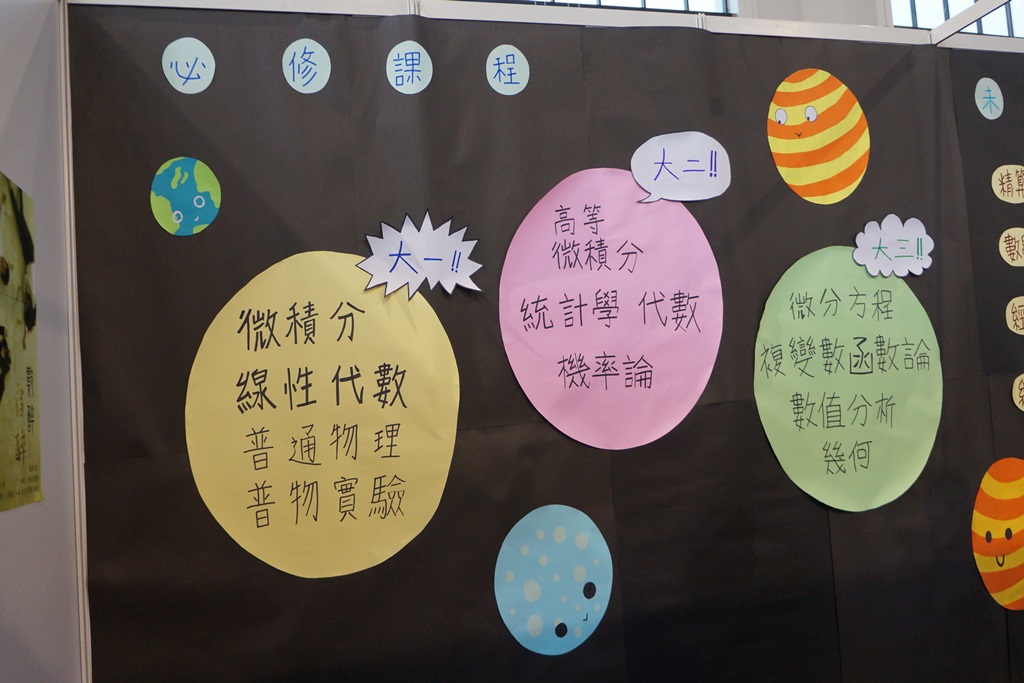 必修課程
大一!!
微積分
線性代數
普通物理
普物實驗
大二!!
高等
微積分
統計學 代數
機率論
大三!!
微分方程
複變數函數論
數值分析
幾何
未
精算